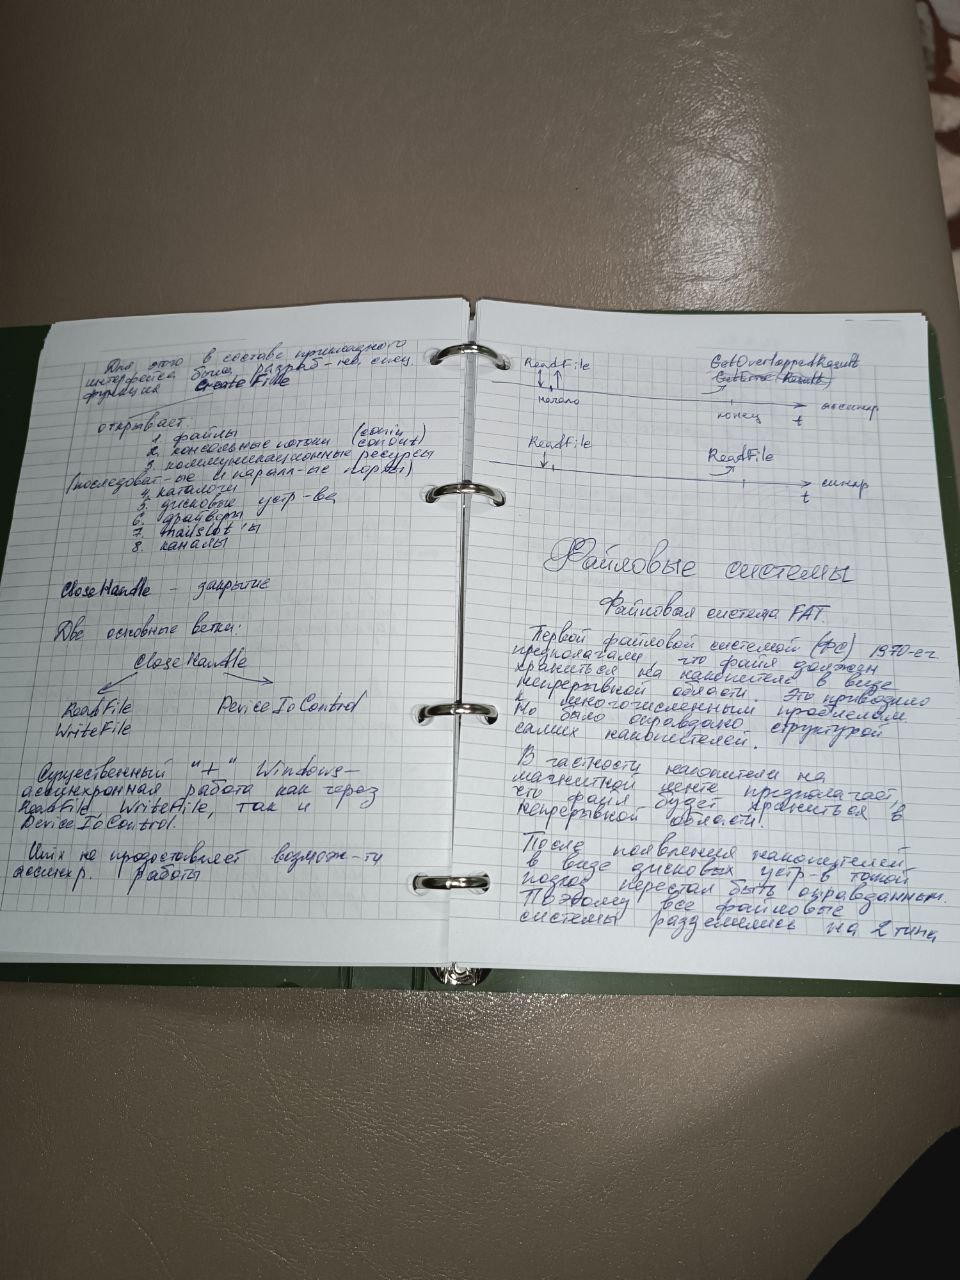 Для этого в составе прикладного
интерфейса была разраб-на спец.
функция CreateFile
открывает:
1. файлы
2. консольные потоки (conin conout)
3. коммуникационные ресурсы
(последоват-ые и паралл-ые порты)
4. каталоги
5. дисковые устр-ва
6. драйверы
7. mailslot'ы
8. каналы
CloseHandle - закрытие
Две основные ветки:
CloseHandle
ReadFile DeviceIoControl
WriteFile
Существенный "+" Windows –
асинхронная работа как через
ReadFile, WriteFile, так и
DeviceIoControl.
Unix не предоставляет возмож-ти
асинхр. работы
ReadFile GetOverlappedResult
начало конец t асинхр
ReadFile ReadFile
t синхр
Файловые системы
Файловая система FAT.
Первой файловой системой (ФС) 1970-ег
предполагали, что файл должен
храниться на накопителе в виде
непрерывной области. Это приводило
к многочисленным проблемам,
но было оправдано структурой
самих накопителей.
В частности накопители на
магнитной ленте предполагает,
что файл будет храниться в
непрерывной области!
После появления накопителей
в виде дисковых устр-в такой
подход перестал быть оправданным.
Поэтому все файловые
системы разделились на 2 типа